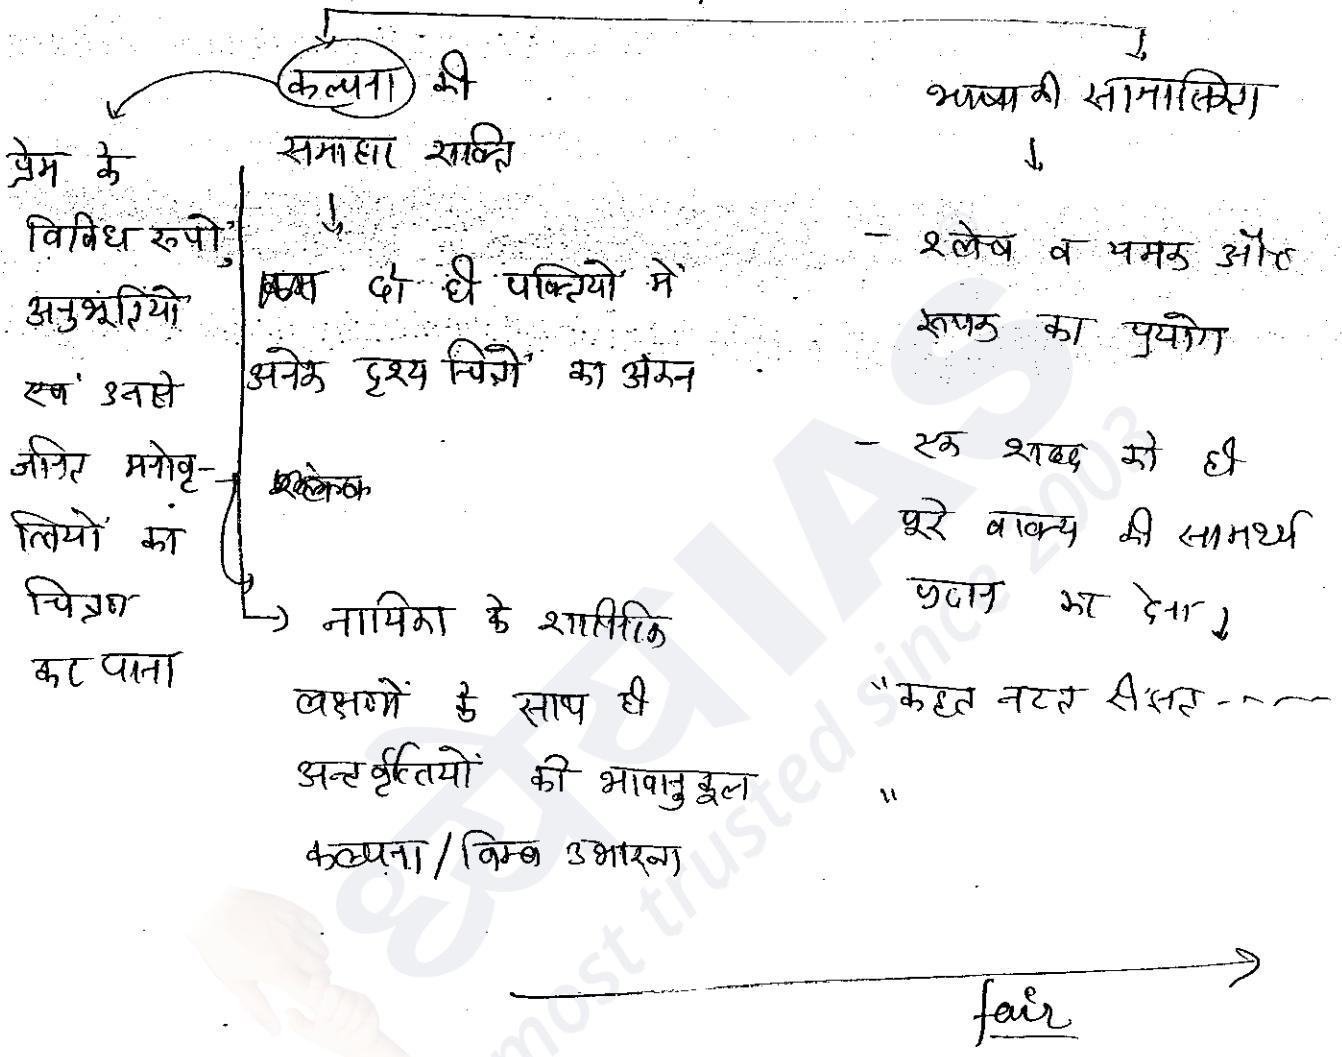 कल्पना की
समाहार शक्ति
प्रेम के
विविध रूपों,
अनुभूतियों
एवं उनसे
जनित मनोवृ-
त्तियों का
चित्रण
कर पाना
दो ही पंक्तियों में
अनेक दृश्य चित्रों का अंकन
नायिका के शारीरिक
लक्षणों के साथ ही
अन्तर्वृत्तियों की भावानुकूल
कल्पना/बिम्ब उभारना
भाषा की सामासिकता
- श्लेष व यमक और
रूपक का प्रयोग
- एक शब्द को ही
पूरे वाक्य की सामर्थ्य
प्रदान कर देना
"कहत नटत रीझत ----
"
fair
ध्येय IAS
most trusted since 2003